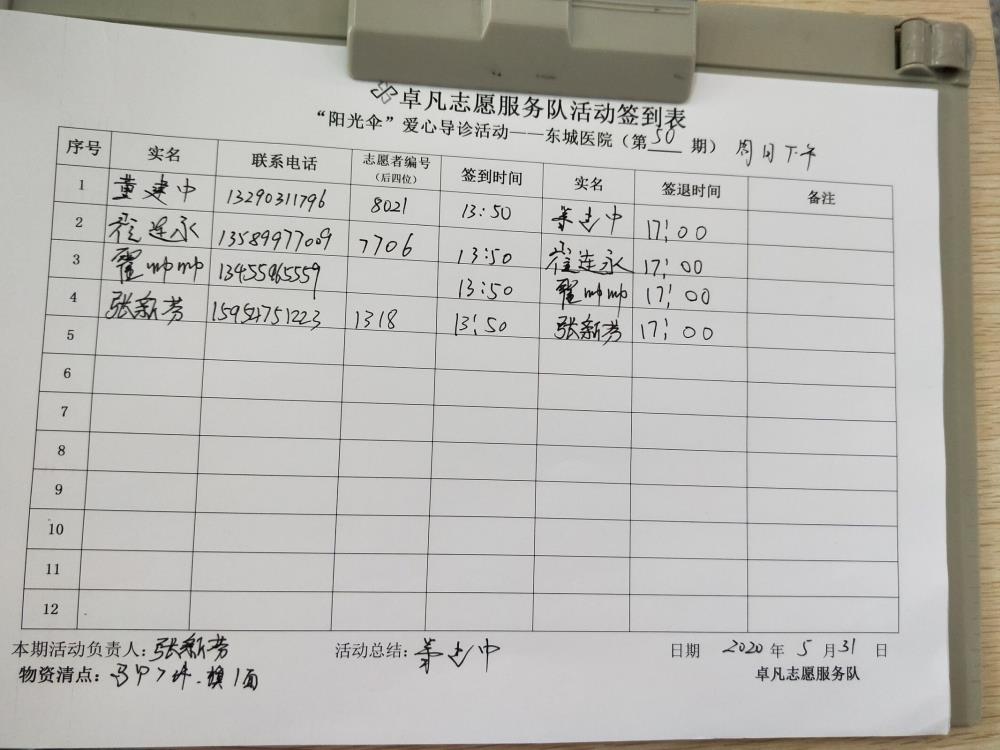 卓凡志愿服务队活动签到表
“阳光伞”爱心导诊活动——东城医院（第50期） 周日下午
序号 实名 联系电话 志愿者编号（后四位） 签到时间 实名 签退时间 备注
1 董建中 13290311796 8021 13:50 董建中 17:00
2 崔连永 13589977009 7706 13:50 崔连永 17:00
3 翟 13455965559 13:50 翟 17:00
4 张新芳 15954751223 1318 13:50 张新芳 17:00
5
6
7
8
9
10
11
12
本期活动负责人：张新芳 活动总结：董建中 日期 2020年5月31日
物资清点：马甲7件.旗1面 卓凡志愿服务队